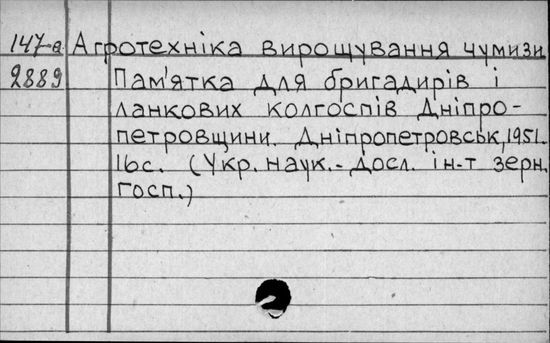 147-а Агротехніка вирощування чумизи
2889 Пам'ятка для бригадирів і
ланкових колгоспів Дніпро-
петровщини. Дніпропетровськ, 1951.
16с. (Укр. наук.- досл. ін-т зерн.
госп.)